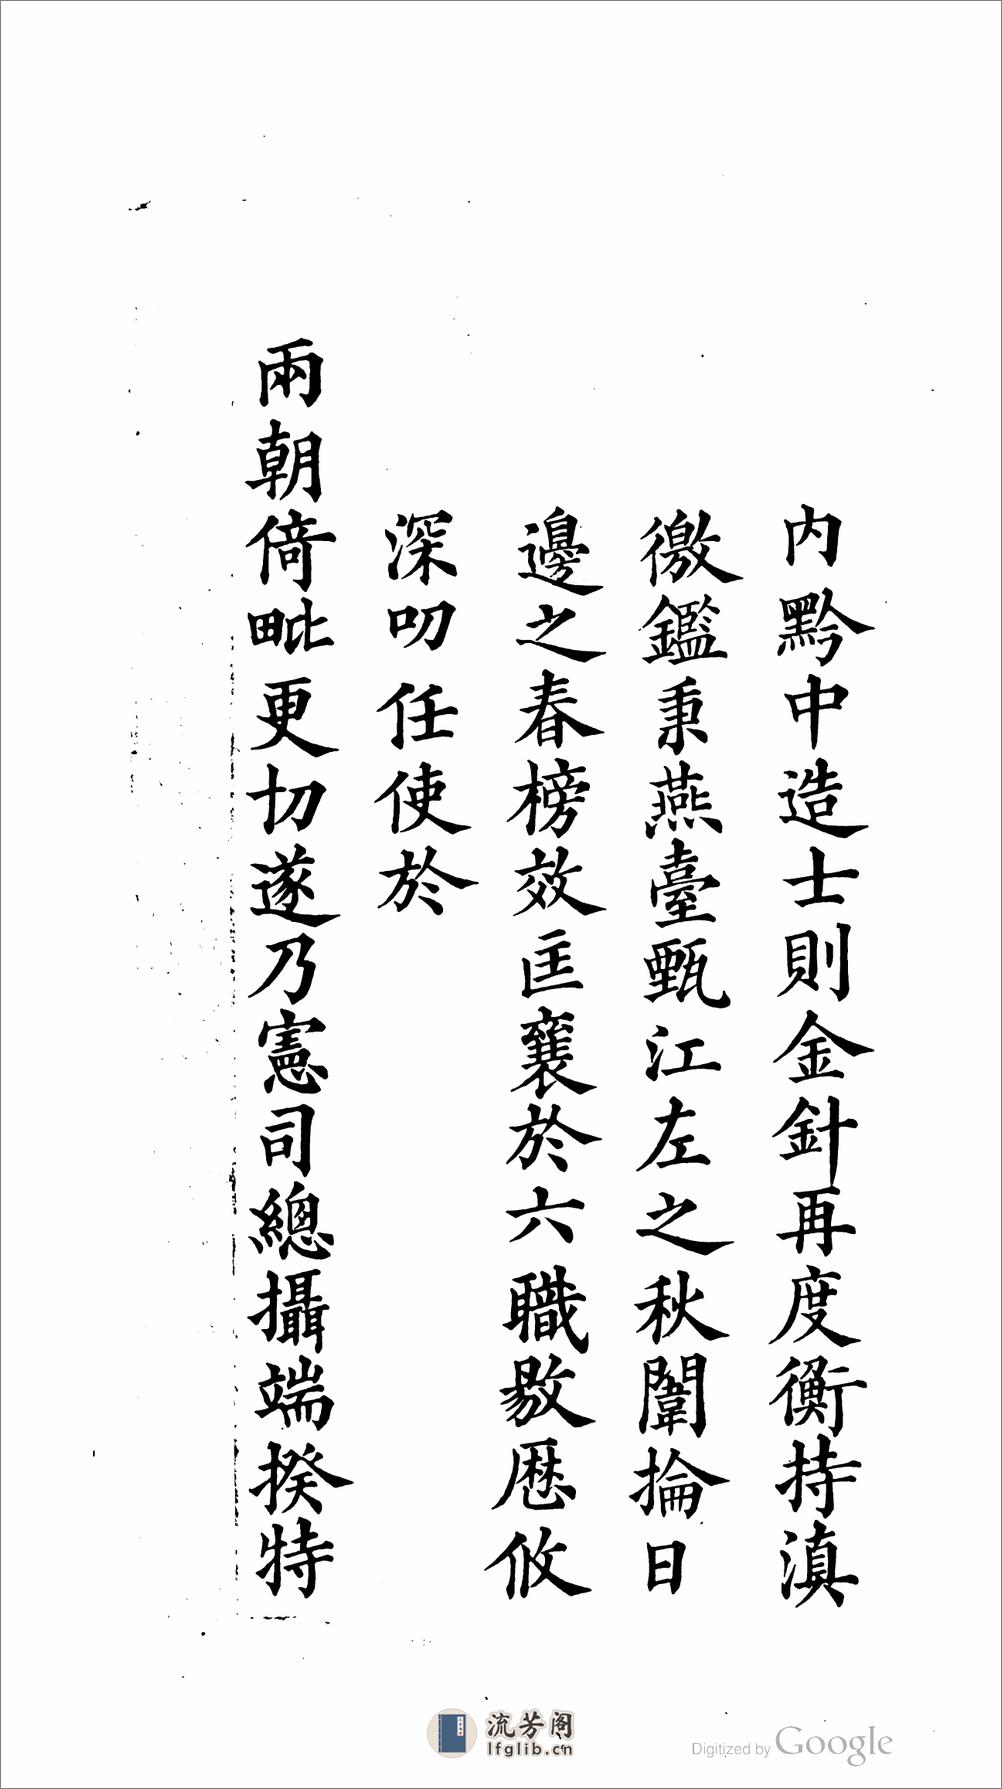 内黔中造士則金針再度衡持滇
徼鑑秉燕臺甄江左之秋闈掄日
邊之春榜效匡襄於六職敭歴攸
深叨任使於
兩朝倚毗更切遂乃憲司總攝端揆特
流芳阁
lfglib.cn
Digitized by Google